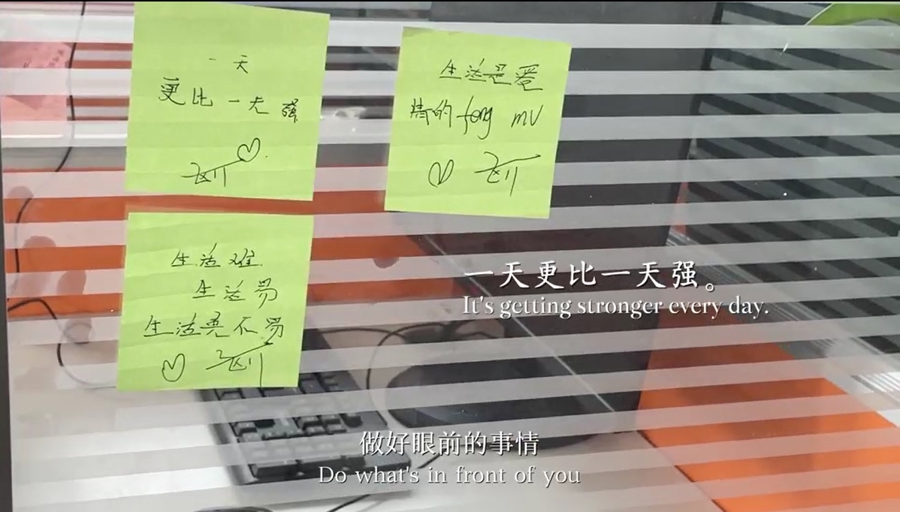 一天
更比一天强
生活是爱
情的 song mv
生活难
生活易
生活更不易
一天更比一天强。
It's getting stronger every day.
做好眼前的事情
Do what's in front of you